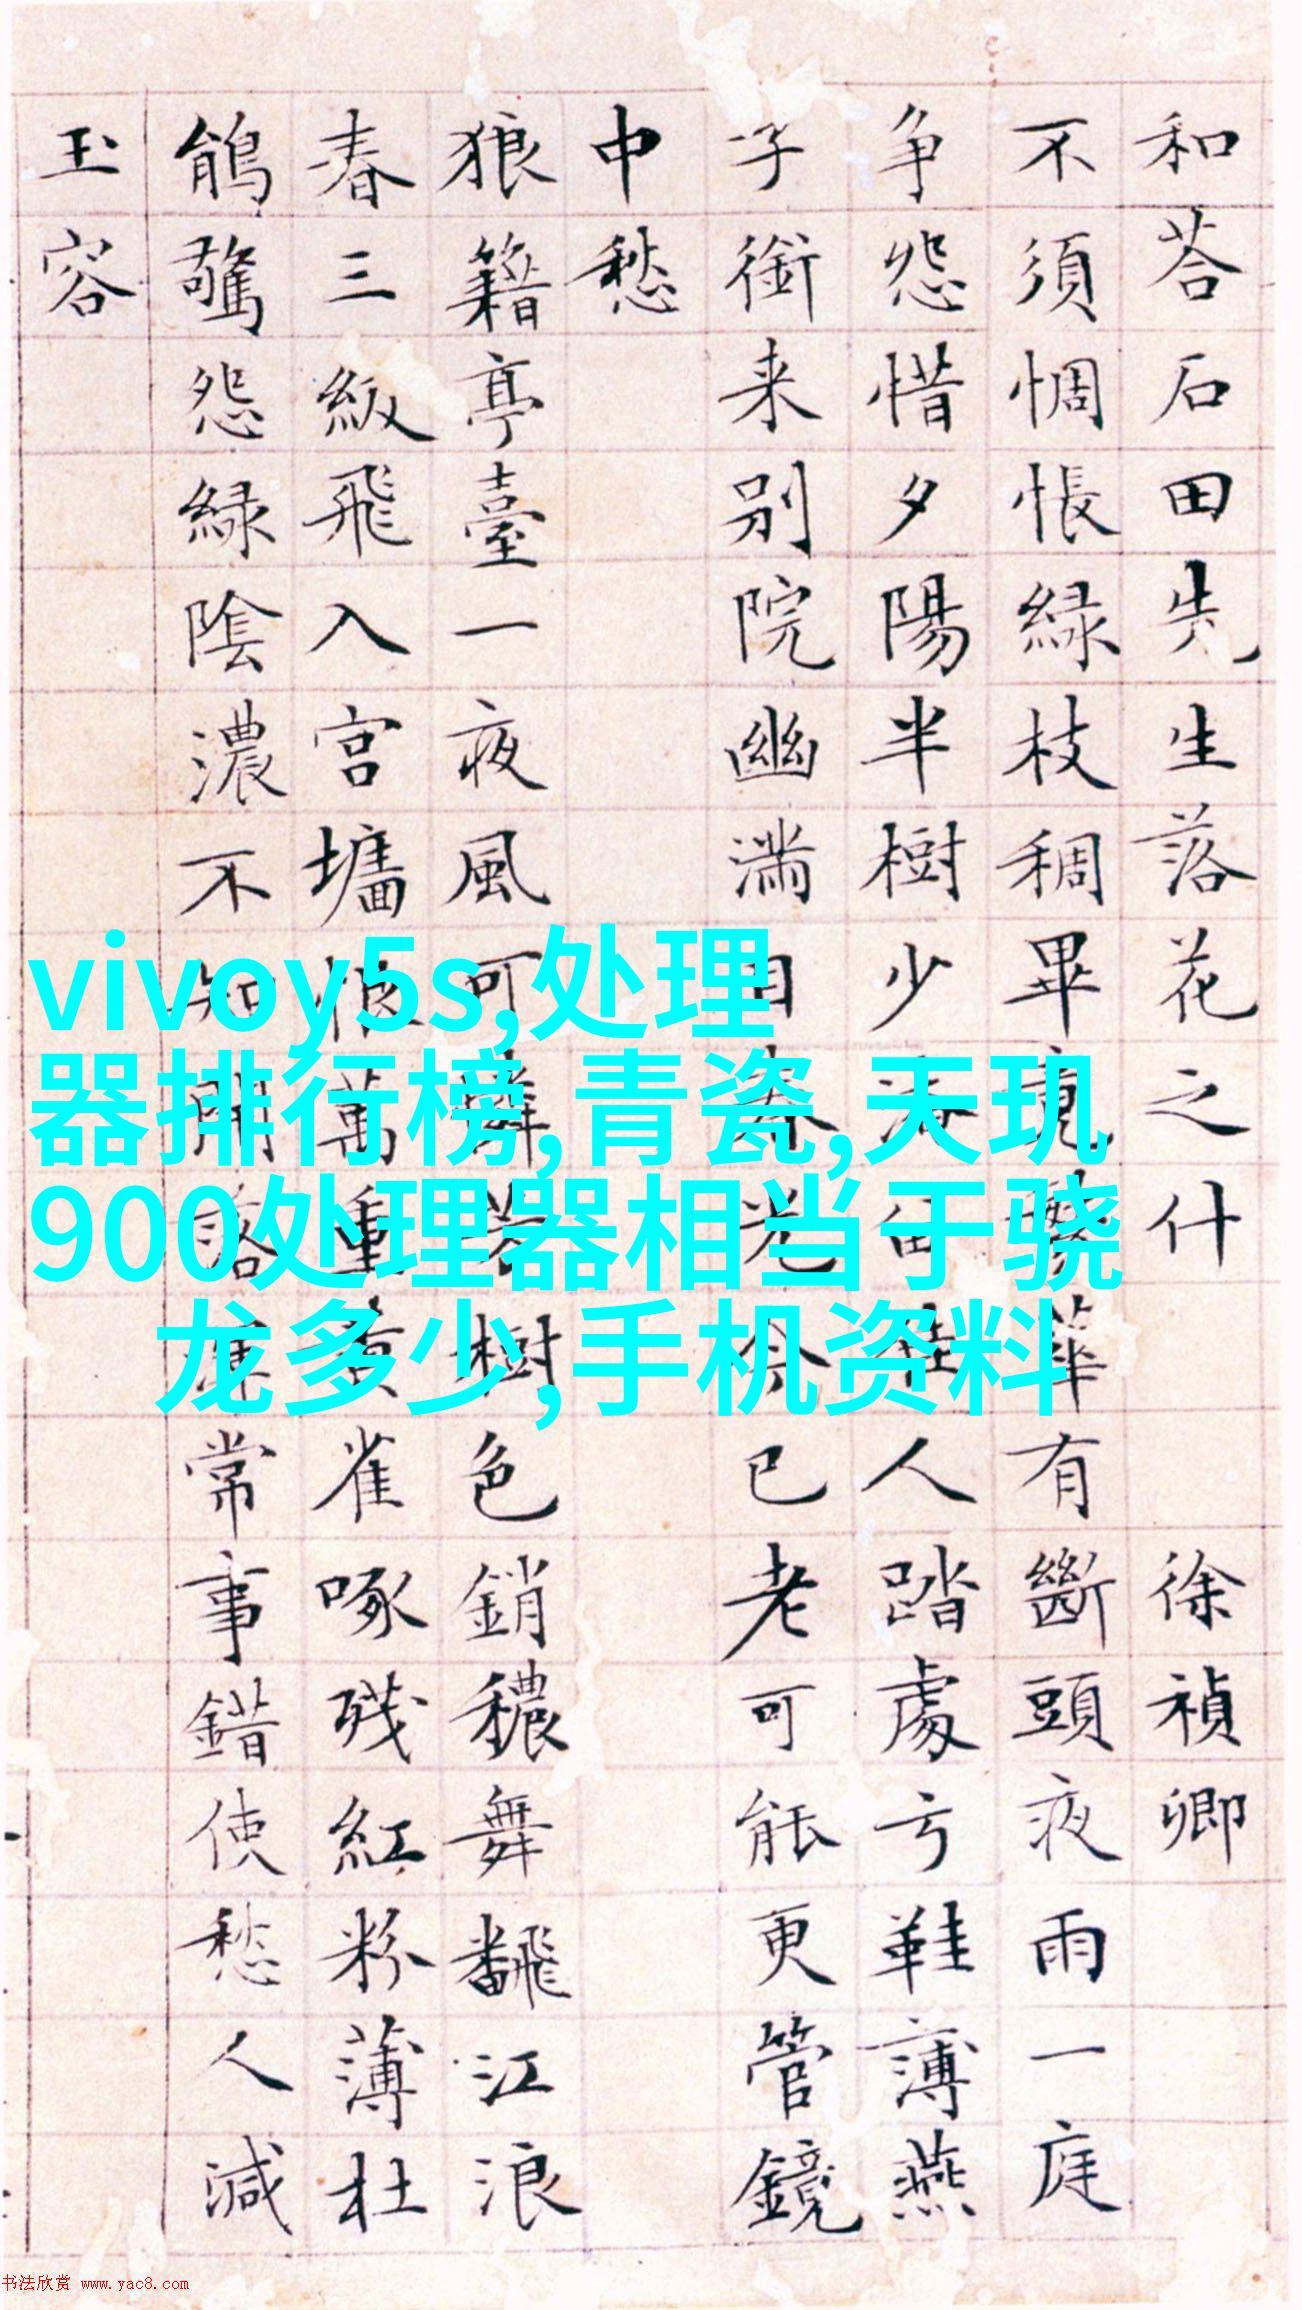 和荅石田先生落花之什 徐禎卿
不須惆悵緑枝稠畢竟繁華有斷頭夜雨一庭
争怨惜夕陽半樹少淹留佳人踏處弓鞋薄燕
子銜来别院幽满目春光今已老可能更管鏡
中愁
狼籍亭臺一夜風可憐芳樹色銷穠舞翻江浪
春三級飛入宫墻恨萬重黄雀啄殘紅粉薄杜
鵑驚怨緑陰濃不知開落常事錯使愁人減
玉容
vivoy5s,处理
器排行榜,青瓷,天玑
900处理器相当于骁
龙多少,手机资料
书法欣赏 www.yac8.com